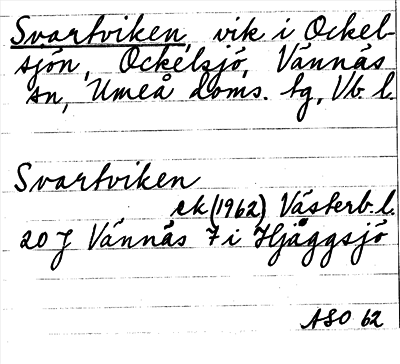 Svartviken, vik i Ockel-
sjön, Ockelsjö, Vännäs
sn, Umeå doms. tg, Vb l.
Svartviken
ek (1962) Västerb. l.
20 J Vännäs 7 i Hjåggsjö
ASO 62